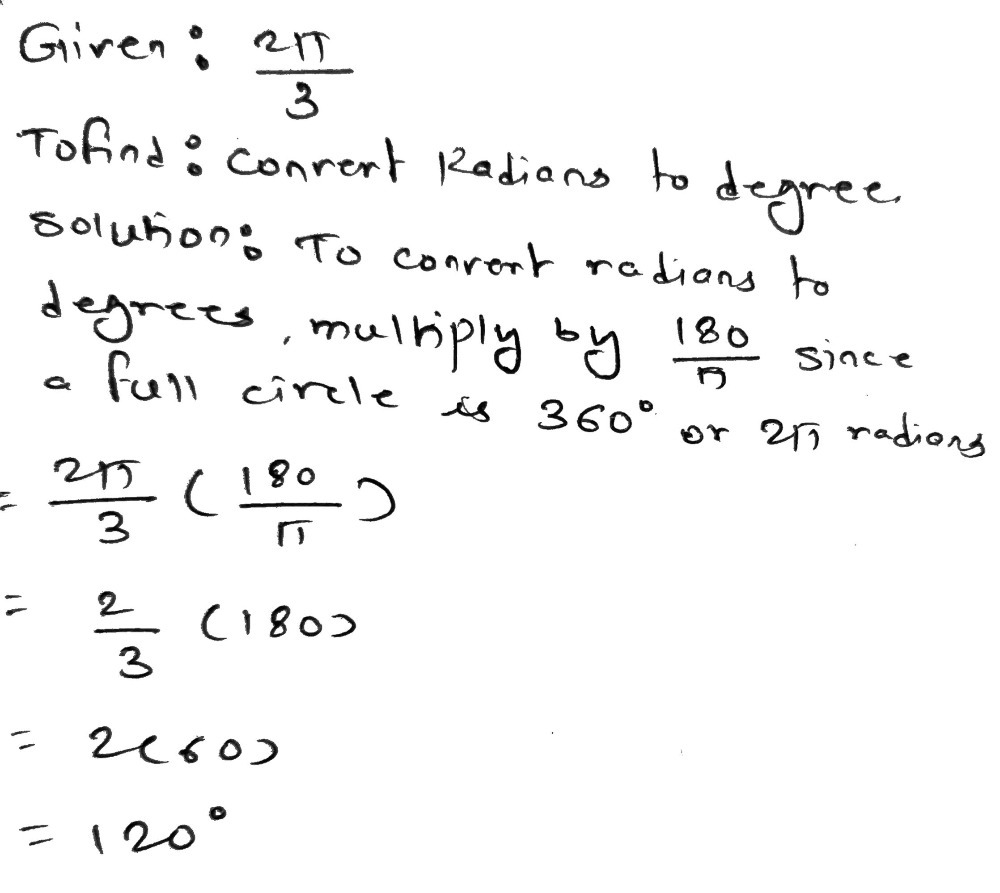 Given: 2π/3
To find: convert Radians to degree.
solution: To convert radians to
degrees, multiply by 180/π since
a full circle is 360° or 2π radians
= 2π/3 (180/π)
= 2/3 (180)
= 2(60)
= 120°